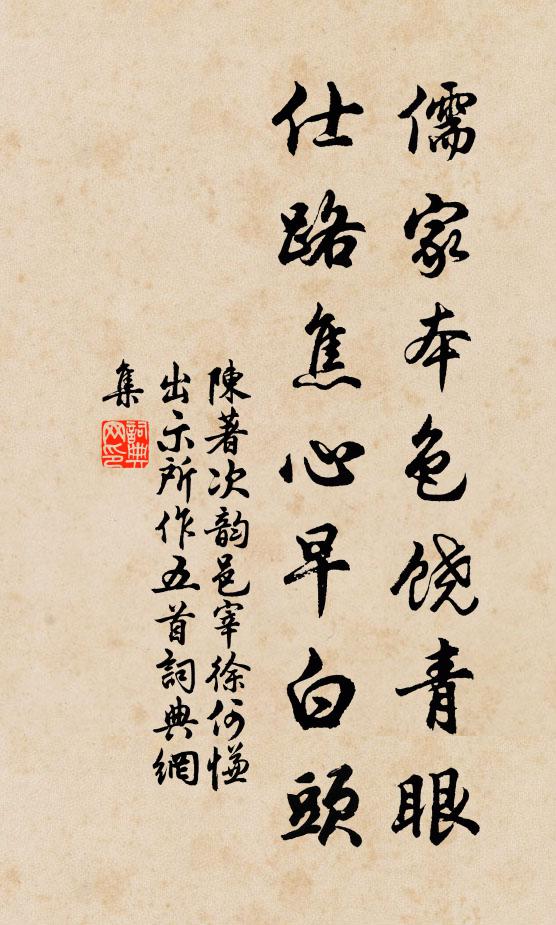 儒家本色饶青眼
仕路焦心早白頭
陳著次韵邑宰徐何慊
出示所作五首詞典網
集
詞典网印